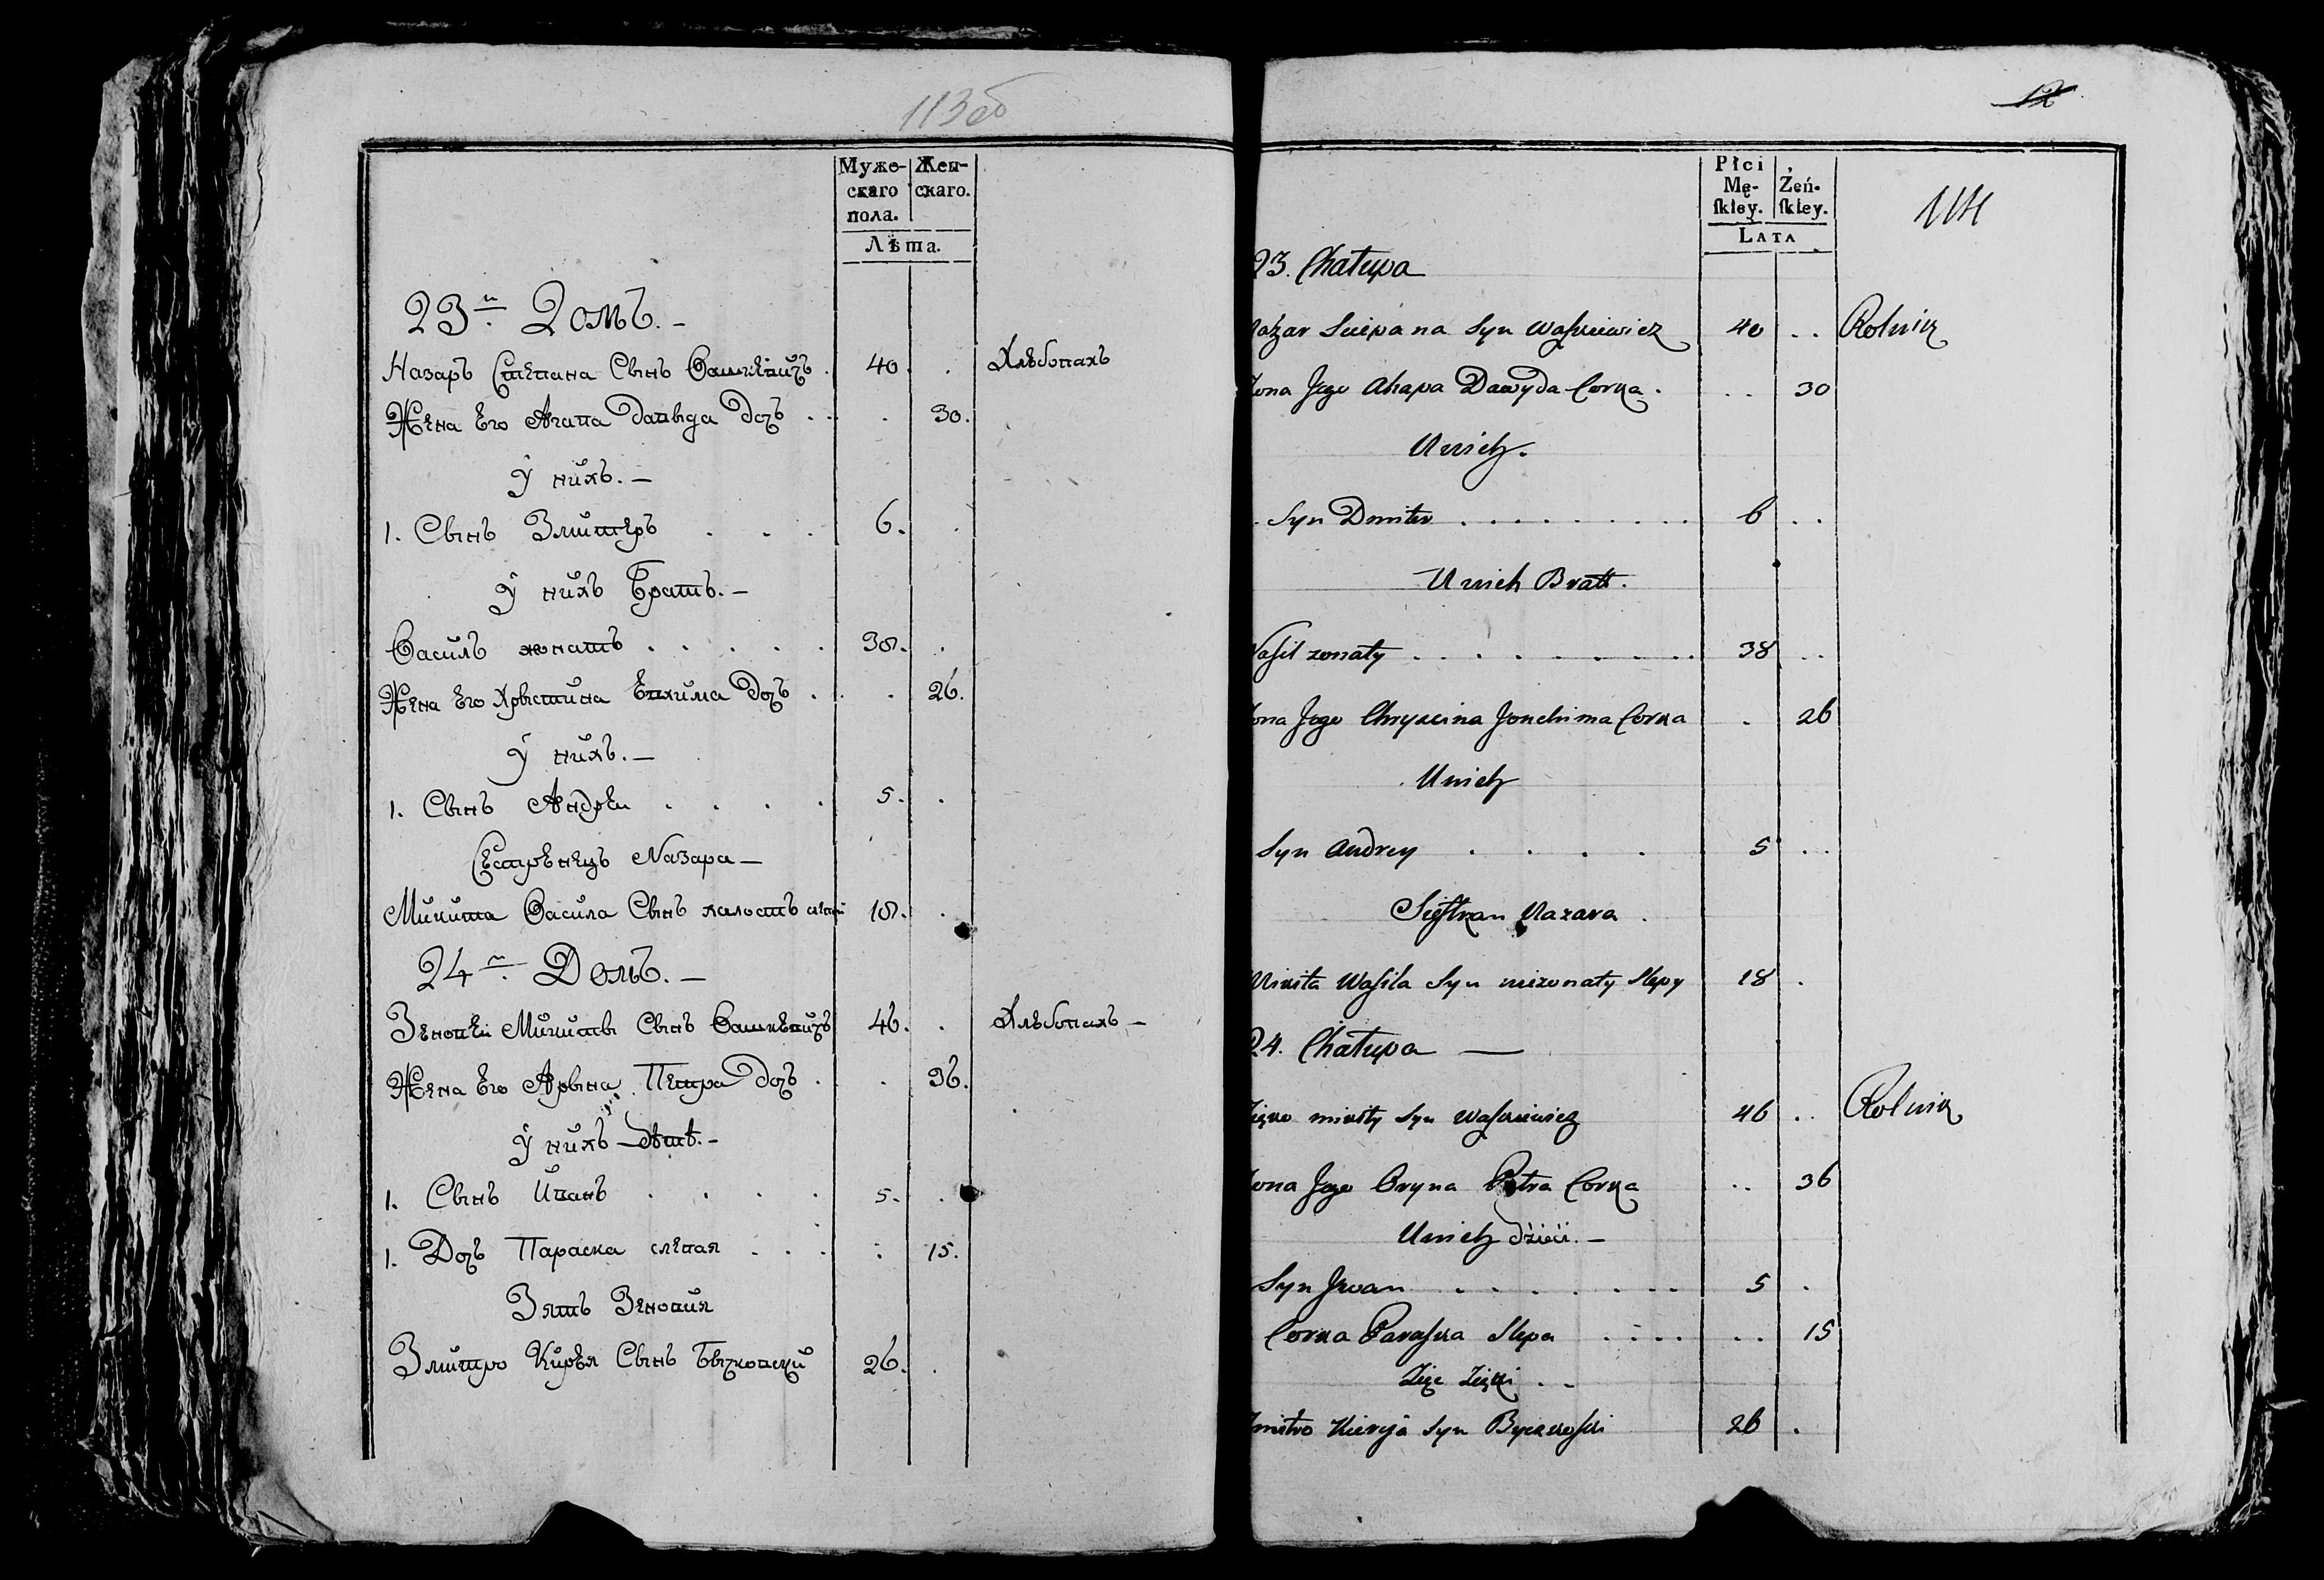 113об
Муже-
скаго
пола.
Жен-
скаго.
Лѣта.
23й Домъ. –
Назаръ Степана Сынъ Вашкевичъ . 40 . . Хлѣбопахъ
Жена Его Агапа Давыда Доч . . . 30.
У нихъ. –
1. Сынъ Змитеръ . . . 6. .
У нихъ Братъ. –
Василь жонатъ . . . . . 38. .
Жена Его Хрыстина Евхима Доч . . . 26.
У нихъ. –
1. Сынъ Андрей . . . . 5. .
Сестренецъ Назара –
Микита Васила Сынъ халостъ слепой 18. .
24й Домъ. –
Зеновей Микиты Сынъ Вашкевичъ 46. . Хлѣбопахъ –
Жена Его Арына Петра Доч . . 36.
У нихъ дѣти. –
1. Сынъ Иванъ . . . . 5. .
1. Доч Параска слепая . . . : 15.
Зять Зеновия
Змитро Кирея Сынъ Бычковский 26. .
12
Płci
Mę-
ſkiey.
Żeń-
ſkiey.
LATA
114
23. Chałupa
Nazar Sciepana Syn Waſzkiewicz 40 . . Rolnik
Żona Jego Ahapa Dawyda Corka . . . 30
U nich.
Syn Dmiter . . . . . . . . . 6 . .
U nich Bratt.
Waſil zonaty . . . . . . . . 38 . .
Żona Jego Chryscina Jouchima Corka . 26
U nich
Syn Andrey . . . . 5 . .
Sieſtrzan Nazara .
Mikita Waſila Syn niezonaty Slepy 18 .
24. Chałupa —
Zieńko Mikity Syn Waſzkiewicz 46 . . Rolnik
Żona Jego Oryna Petra Corka . . 36
U nich dzieci. –
Syn Jwan . . . . . . . 5 .
Corka Paraſka Slepa . . . . . . 15
Zięć Zieńki . –
Zmitro Kireja Syn Byczkoſki 26 .